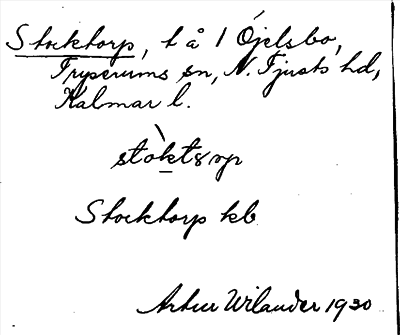 Stocktorp, t å 1 Öjelsbo,
Tryserums sn, N. Tjusts hd,
Kalmar l.
Stocktorp kb
Artur Wilander 1930